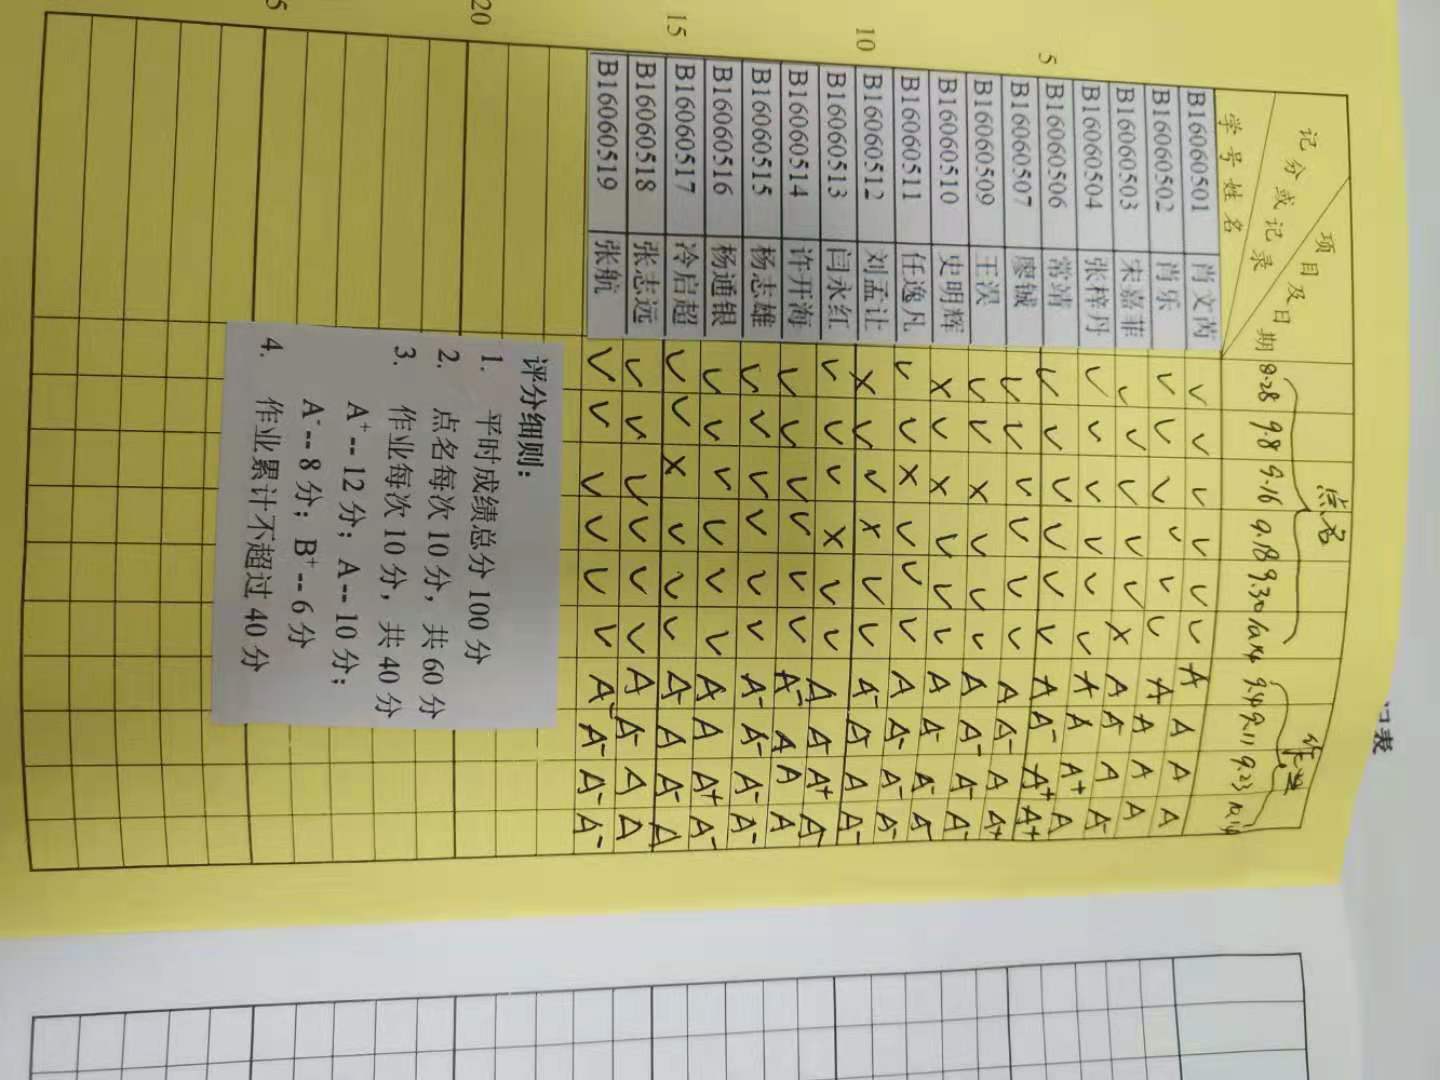 项目及日期
记分或记录
学号姓名
点名
作业
8.28 9.8 9.16 9.18 9.30 10.14 9.4 9.11 9.23 10.14
B16060501 肖文芮 ✓ ✓ ✓ ✓ ✓ ✓ A A A A
B16060502 肖乐 ✓ ✓ ✓ ✓ ✓ ✓ A A A A
B16060503 宋嘉菲 ✓ ✓ ✓ ✓ ✓ × A A⁻ A A⁻
B16060504 张梓丹 ✓ ✓ ✓ ✓ ✓ ✓ A A A⁺ A
5 B16060506 常靖 ✓ ✓ ✓ ✓ ✓ ✓ A A⁻ A⁺ A⁺
B16060507 廖铖 ✓ ✓ ✓ ✓ ✓ ✓ A A⁻ A A⁺
B16060509 王淏 ✓ ✓ × ✓ ✓ ✓ A A⁻ A⁻ A⁻
B16060510 史明辉 × ✓ × ✓ ✓ ✓ A A⁻ A⁻ A⁻
B16060511 任逸凡 ✓ ✓ × ✓ ✓ ✓ A A⁻ A⁻ A⁻
10 B16060512 刘孟让 × ✓ ✓ × ✓ ✓ A⁻ A⁻ A A⁻
B16060513 闫永红 ✓ ✓ ✓ × ✓ ✓ A A⁻ A⁺ A⁻
B16060514 许开海 ✓ ✓ ✓ ✓ ✓ ✓ A⁻ A A A
B16060515 杨志雄 ✓ ✓ ✓ ✓ ✓ ✓ A⁻ A⁻ A⁻ A⁻
B16060516 杨通银 ✓ ✓ ✓ ✓ ✓ ✓ A A A⁺ A⁻
15 B16060517 冷启超 ✓ ✓ × ✓ ✓ ✓ A⁻ A A⁻ A
B16060518 张志远 ✓ ✓ ✓ ✓ ✓ ✓ A A⁻ A A
B16060519 张航 ✓ ✓ ✓ ✓ ✓ ✓ A⁻ A⁻ A⁻ A⁻
20
评分细则：
1. 平时成绩总分 100 分
2. 点名每次 10 分，共 60 分
3. 作业每次 10 分，共 40 分
A⁺--12 分；A--10 分；
A⁻--8 分；B⁺--6 分
4. 作业累计不超过 40 分